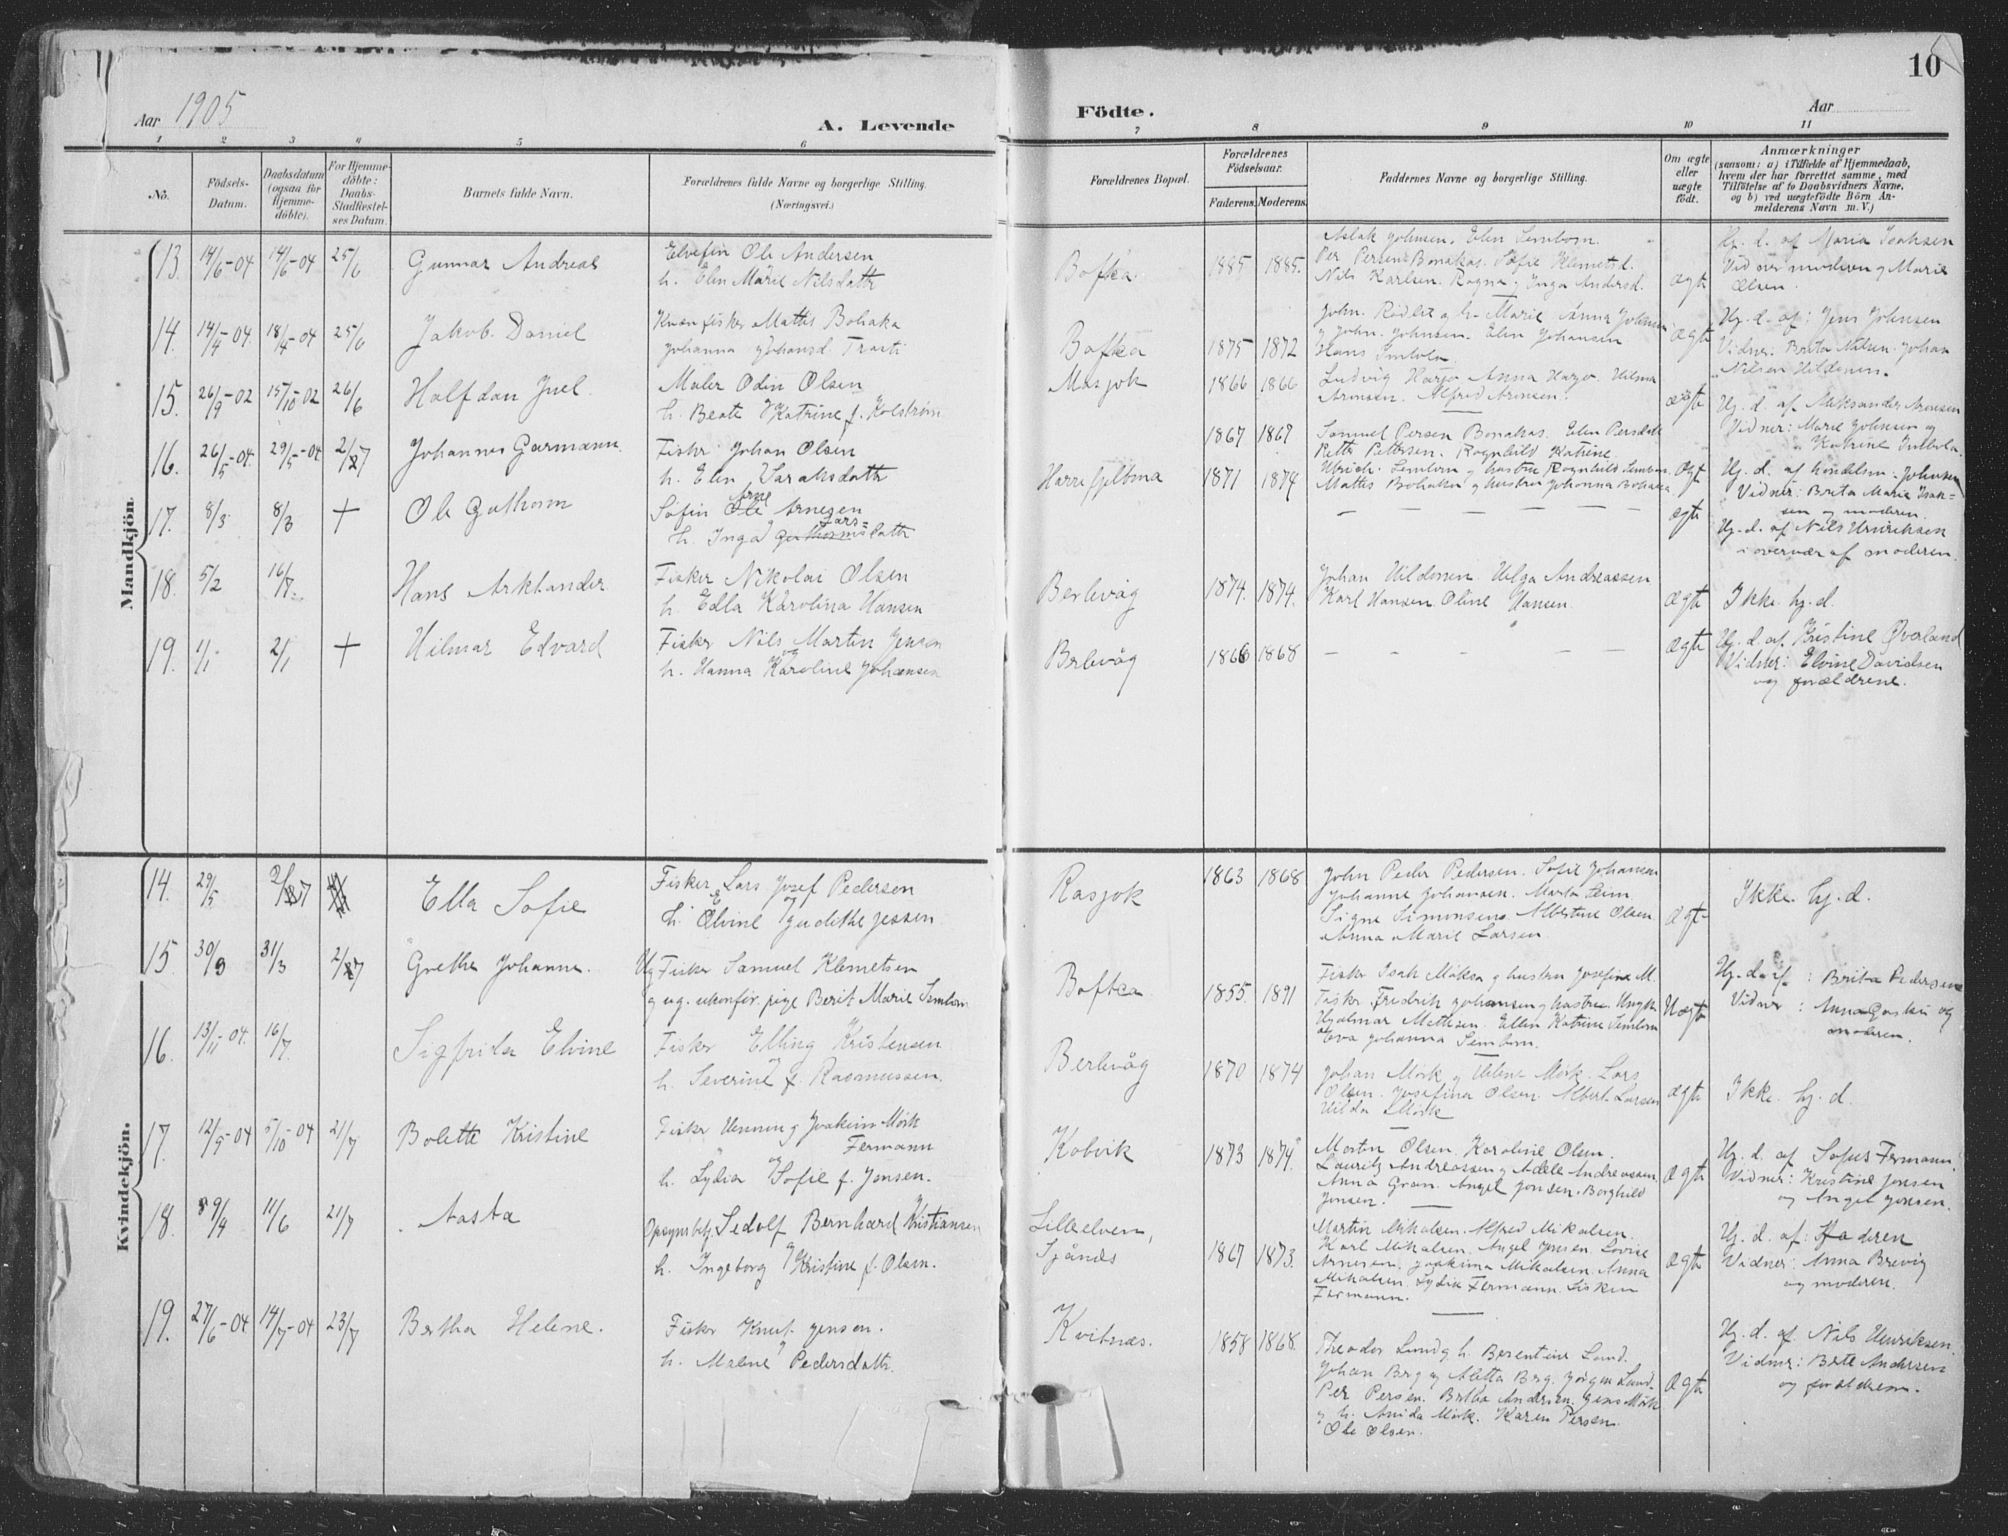 10
Aar 1905
A. Levende
Födte.
Aar
1 2 3 4 5 6 7 8 9 10 11
No.
Födsels-Datum.
Daabsdatum (ogsaa for Hjemmedöbte).
For Hjemmedöbte: Daabs-Stadfæstelses Datum.
Barnets fulde Navn.
Forældrenes fulde Navne og borgerlige Stilling. (Næringsvei.)
Forældrenes Bopæl.
Forældrenes Födselsaar.
Faderens. Moderens.
Faddernes Navne og borgerlige Stilling.
Om ægte eller uægte födt.
Anmærkninger
(saasom: a) i Tilfælde af Hjemmedaab,
hvem der har forrettet samme, med
Tilföielse af to Daabsvidners Navne,
og b) ved uægtefödte Börn An-
melderens Navn m. V.)
Mandkjön.
13. 14/6-04 14/6-04 25/6 Gunnar Andreas
Elvefin Ole Andersen
h. Elen Marie Nilsdatth
Boftca 1885 1885.
Aslak Johnsen. Elen Semborn.
Per Persen Bonakas. Sofie Klemetsd.
Nils Karlsen. Ragna Inga Andersd.
ægte
Hj. d. af Maria Isaksen
Vidner moderen og Marie
Olsen.
14. 14/4-04. 18/4-04 25/6 Jakob Daniel
Kvæn fisker Mattis Bohaka
Johanna Johansd. Trasti
Boftca 1875 1872
John. h. Marie Anna Johnsen
John. Johnsen. Elen Johansen
Hans
ægte
Hj. d. af: Jens Johnsen
Vidner: Brita Nilsen. Johan
Nilsen Hildonen.
15. 26/9-02 15/10-02 26/6 Halfdan Juel
Maler Odin Olsen
h. Beate Katrine f. Kolström
Masjok 1866 1866
Ludvig Harjo Anna Harjo. Hilma
Aronsen. Alfred Aronsen.
ægte
Hj. d. af Aleksander Aronsen
Vidner: Marie Johnsen og
Katrine
16. 26/5-04. 29/5-04 2/7 Johannes Garmann.
Fisker Johan Olsen
h. Elen Saraksdatth
1867 1867
Samuel Persen Bonakas. Elen Persdatt
Petter Pettersen. Ragnhild Katrine.
Harrefjeltma 1871 1874
Ulrich. Semborn og hustru Ragnhild Semborn.
Mattis Bohaka og hustru Johanna Bohaka
ægte
Hj. d. af Johnsen
Vidner: Brita Maria Isak-
sen og moderen.
17. 8/3 8/3 + Ole Guthorm
Söfin Ole Arne Arnesen
h. Inga Guthormsdatth Lars=
— — — — — —
ægte
Hj. d. af Nils Henriksen
i overvær af moderen.
18. 5/2 16/7. Hans Arkhander
Fisker Nikolai Olsen
h. Edla Karolina Hansen
Berlevåg 1874. 1874.
Johan Hildonen. Helga Andreassen
Karl Hansen. Oline Hansen.
ægte
Ikke hj. d.
19. 1/1 2/1 + Hilmar Edvard
Fisker Nils Martin Jensen
h. Hanna Karoline Johansen
Berlevåg 1868 1868
— — — — — —
ægte
Hj. d. af Kristine Øverland
Vidner: Elvine Davidsen
og forældrene.
Kvindekjön.
14. 29/5 2/7 Ella Sofie
Fisker Lars Josef Pedersen
h. Elvine Judithe Jessen
Rasjok 1863 1868
John Peder Pedersen. Sofie Johansen
Johanne Johansen. Marta Leim
Signe Simonsen. Albertine Olsen
Anna Marie Larsen
ægte
Ikke. hj. d.
15. 30/3 31/3 2/7 Grethe Johanne.
Ug Fisker Samuel Klemetsen
og ug. ukonfir. pige Berit Marie Semborn
Boftca 1855. 1891
Fisker Isak Måksa og hustru Josefina M.
Fisker Fredrik Johansen og hustru
Hjalmar Mathisen. Ellen Katrine Semborn
Eva Johanna Semborn.
Uægte
Hj. d. af: Brita Pedersen
Vidner: Anna Gaski og
moderen.
16. 13/11-04. 16/7. Sigfrida Elvine
Fisker Elling Kristensen
h. Severine f. Rasmussen.
Berlevåg 1870 1874
Johan Mörk og Helene Mörk. Lars
Olsen. Josefina Olsen. Albert Larsen
Hilda Mörk
ægte
Ikke. hj. d.
17. 12/9-04 5/10-04 21/7 Bolette Kristine
Fisker Henning Joakim Mörk
Fermann
h. Lydia Sofie f. Jensen.
Kobvik 1873 1874.
Morten Olsen. Karoline Olsen.
Lauritz Andreassen og Adele Andreassen.
Anna Gran. Angel Jensen. Borghild
Jensen.
ægte
Hj. d. af Sofus Fermann.
Vidner: Kristine Jensen
og Angel Jensen.
18. 9/4 11/6 21/7 Aasta
Opsynsbetj. Sedolf Bernhard Kristiansen
h. Ingeborg Kristine f. Olsen.
Lilleelven,
Sjånæs 1867 1873.
Martin Mikalsen. Alfred Mikalsen.
Karl Mikalsen. Angel Jensen. Lovise
Arnesen. Joakima Mikalsen. Anna
Mikalsen. Lydia Fermann. Sisken
Fermann.
ægte
Hj. d. af: Faderen
Vidner: Anna Brevig
og moderen.
19. 27/6-04 14/7-04 23/7 Bertha Helene.
Fisker Knut Jensen.
h. Malene Pedersdatth.
Kvitnæs. 1858 1868.
Theodor Lund og h. Berentine Lund.
Johan Berg og Aletta Berg. Jörgen Lund.
Per Persen. Bertha Andersen. Jens Mörk
og h. Anida Mörk. Karen Persen.
Ole Olsen.
ægte
Hj. d. af Nils Henriksen.
Vidner: Berte Andersen
og forældrene.